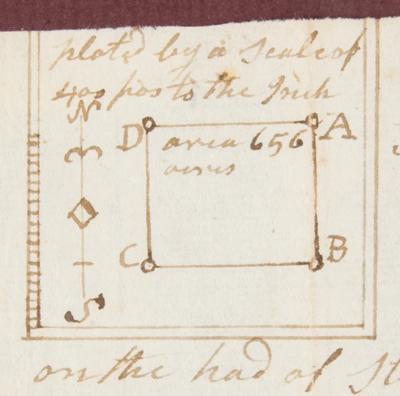 plat'd by a Scale of
400 pos to the Inch
N
D A
area 656
acres
C B
S
on the had of St